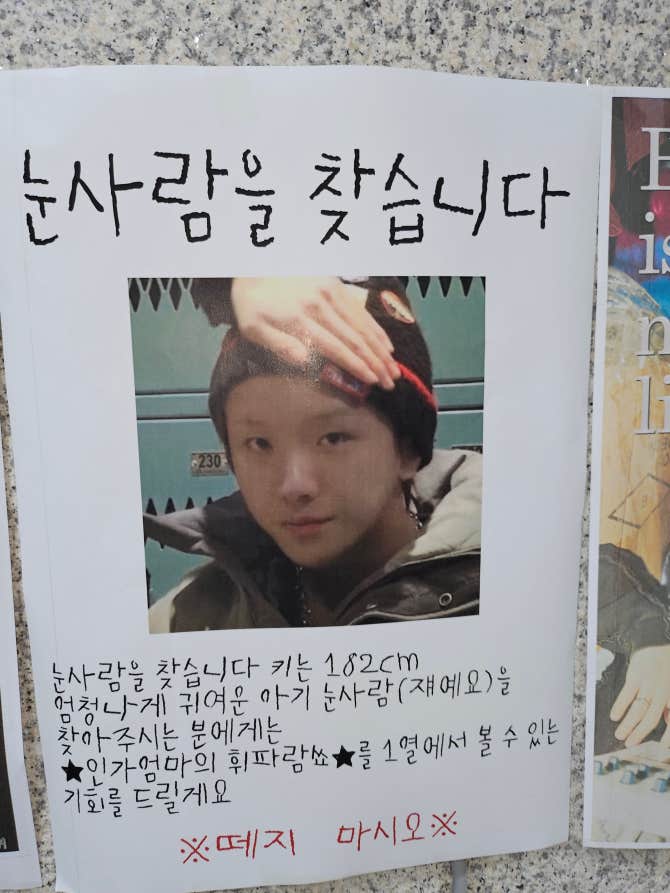 눈사람을 찾습니다
230
눈사람을 찾습니다 키는 182cm
엄청나게 귀여운 아기 눈사람(쟤예요)을
찾아주시는 분에게는
★인가엄마의 휘파람쑈★를 1열에서 볼 수 있는
기회를 드릴게요
※떼지 마시오※
is
li